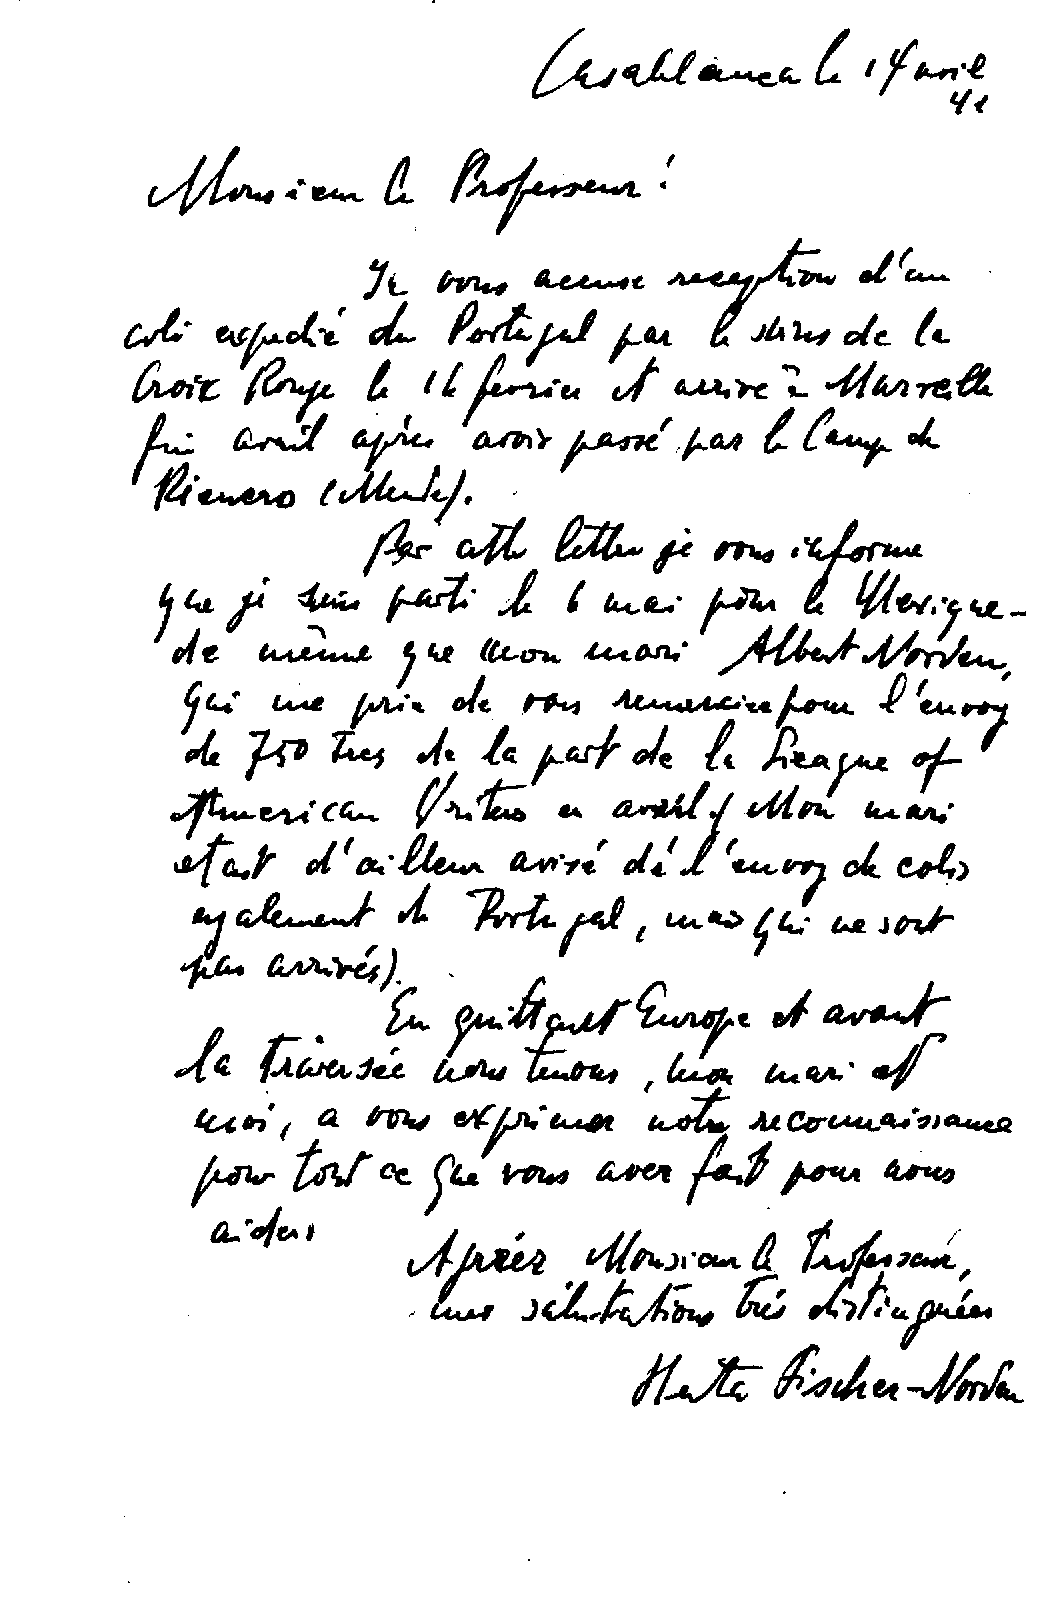 Casablanca le 14 avril
41
Monsieur le Professeur!
Je vous accuse reception d'un
coli expedié du Portugal par le soins de la
Croix Rouge le 16 fevrier et arrive à Marseille
fin avril après avoir passé par le Camp de
Rieucros (Mende).
Par cette lettre je vous informe
que je suis parti le 6 mai pour le Mexique-
de même que mon mari Albert Norden,
qui me prie de vous remercier pour l'envoy
de 750 frcs de la part de la League of
American Writers en avril. (Mon mari
etait d'ailleur avisé dé l'envoy de colis
egalement de Portugal, mais qui ne sont
pas arrivés).
En quittant Europe et avant
la traversée nous tenons, mon mari et
moi, a vous exprimer notre reconnaissance
pour tout ce que vous aver fait pour nous
aider.
Agréez Monsieur le Professeur,
mes salutations très distinguées
Herta Fischer-Norden